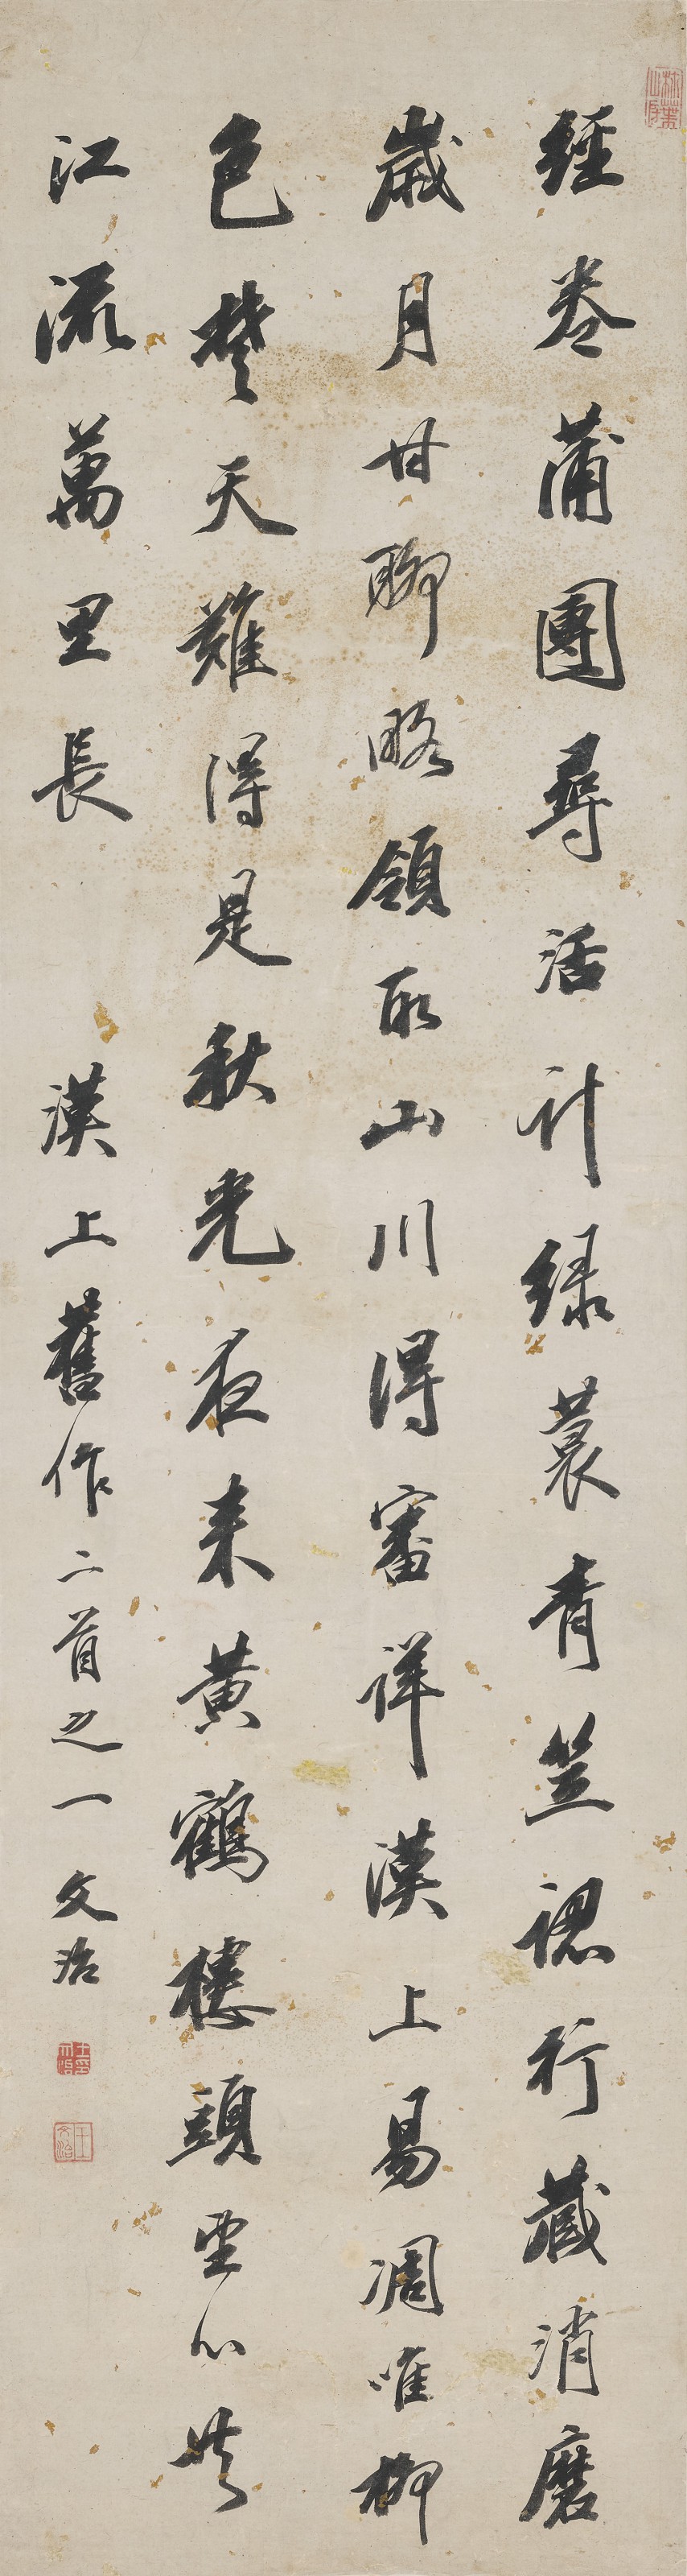 經卷蒲團尋活計綠蓑青笠認行藏消磨
歲月甘聊略領取山川得審詳漢上易凋唯柳
色楚天難得是秋光夜來黃鶴樓頭望心共
江流萬里長
漢上舊作二首之一 文治
王文治